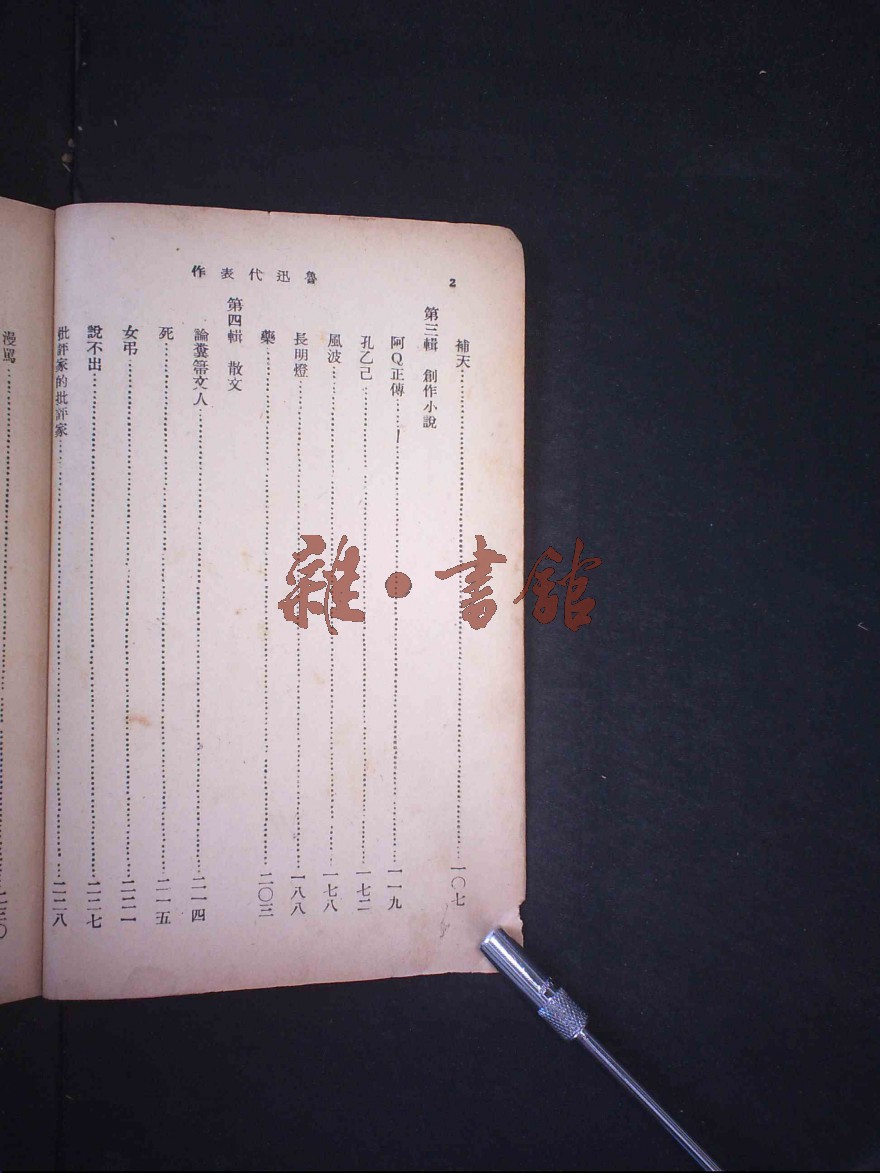 魯迅代表作
2
補天……一〇七
第三輯 創作小說
阿Q正傳……一一九
孔乙己……一七二
風波……一七八
長明燈……一八八
藥……二〇三
第四輯 散文
論糞箒文人……二一四
死……二一五
女弔……二二一
說不出……二二七
批評家的批評家……二二八
漫罵……二三〇
雜·書館